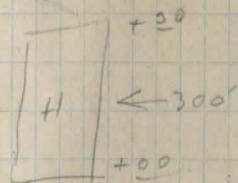 +30
H ← 300'
+00